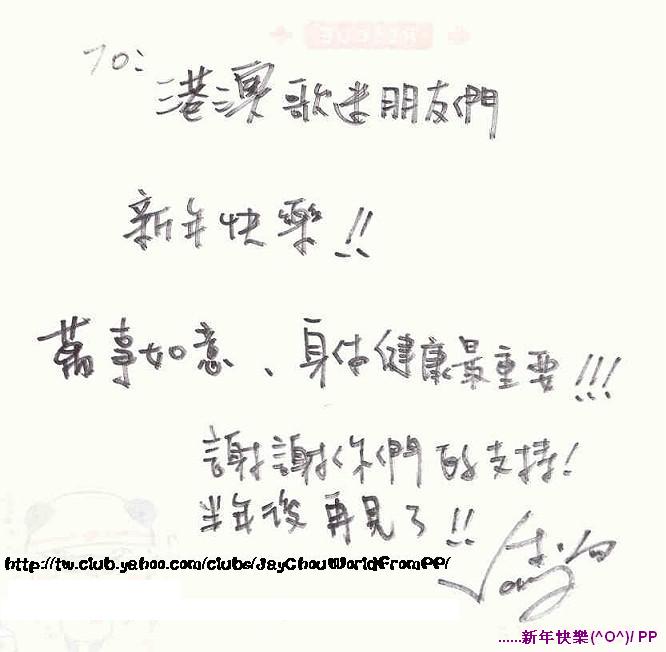 TO:
港澳歌迷朋友們
新年快樂!!
萬事如意、身体健康最重要!!!
謝謝你們的支持!
半年後再見了!!
http://tw.club.yahoo.com/clubs/JayChouWorldFromPP/
......新年快樂(^O^)/ PP